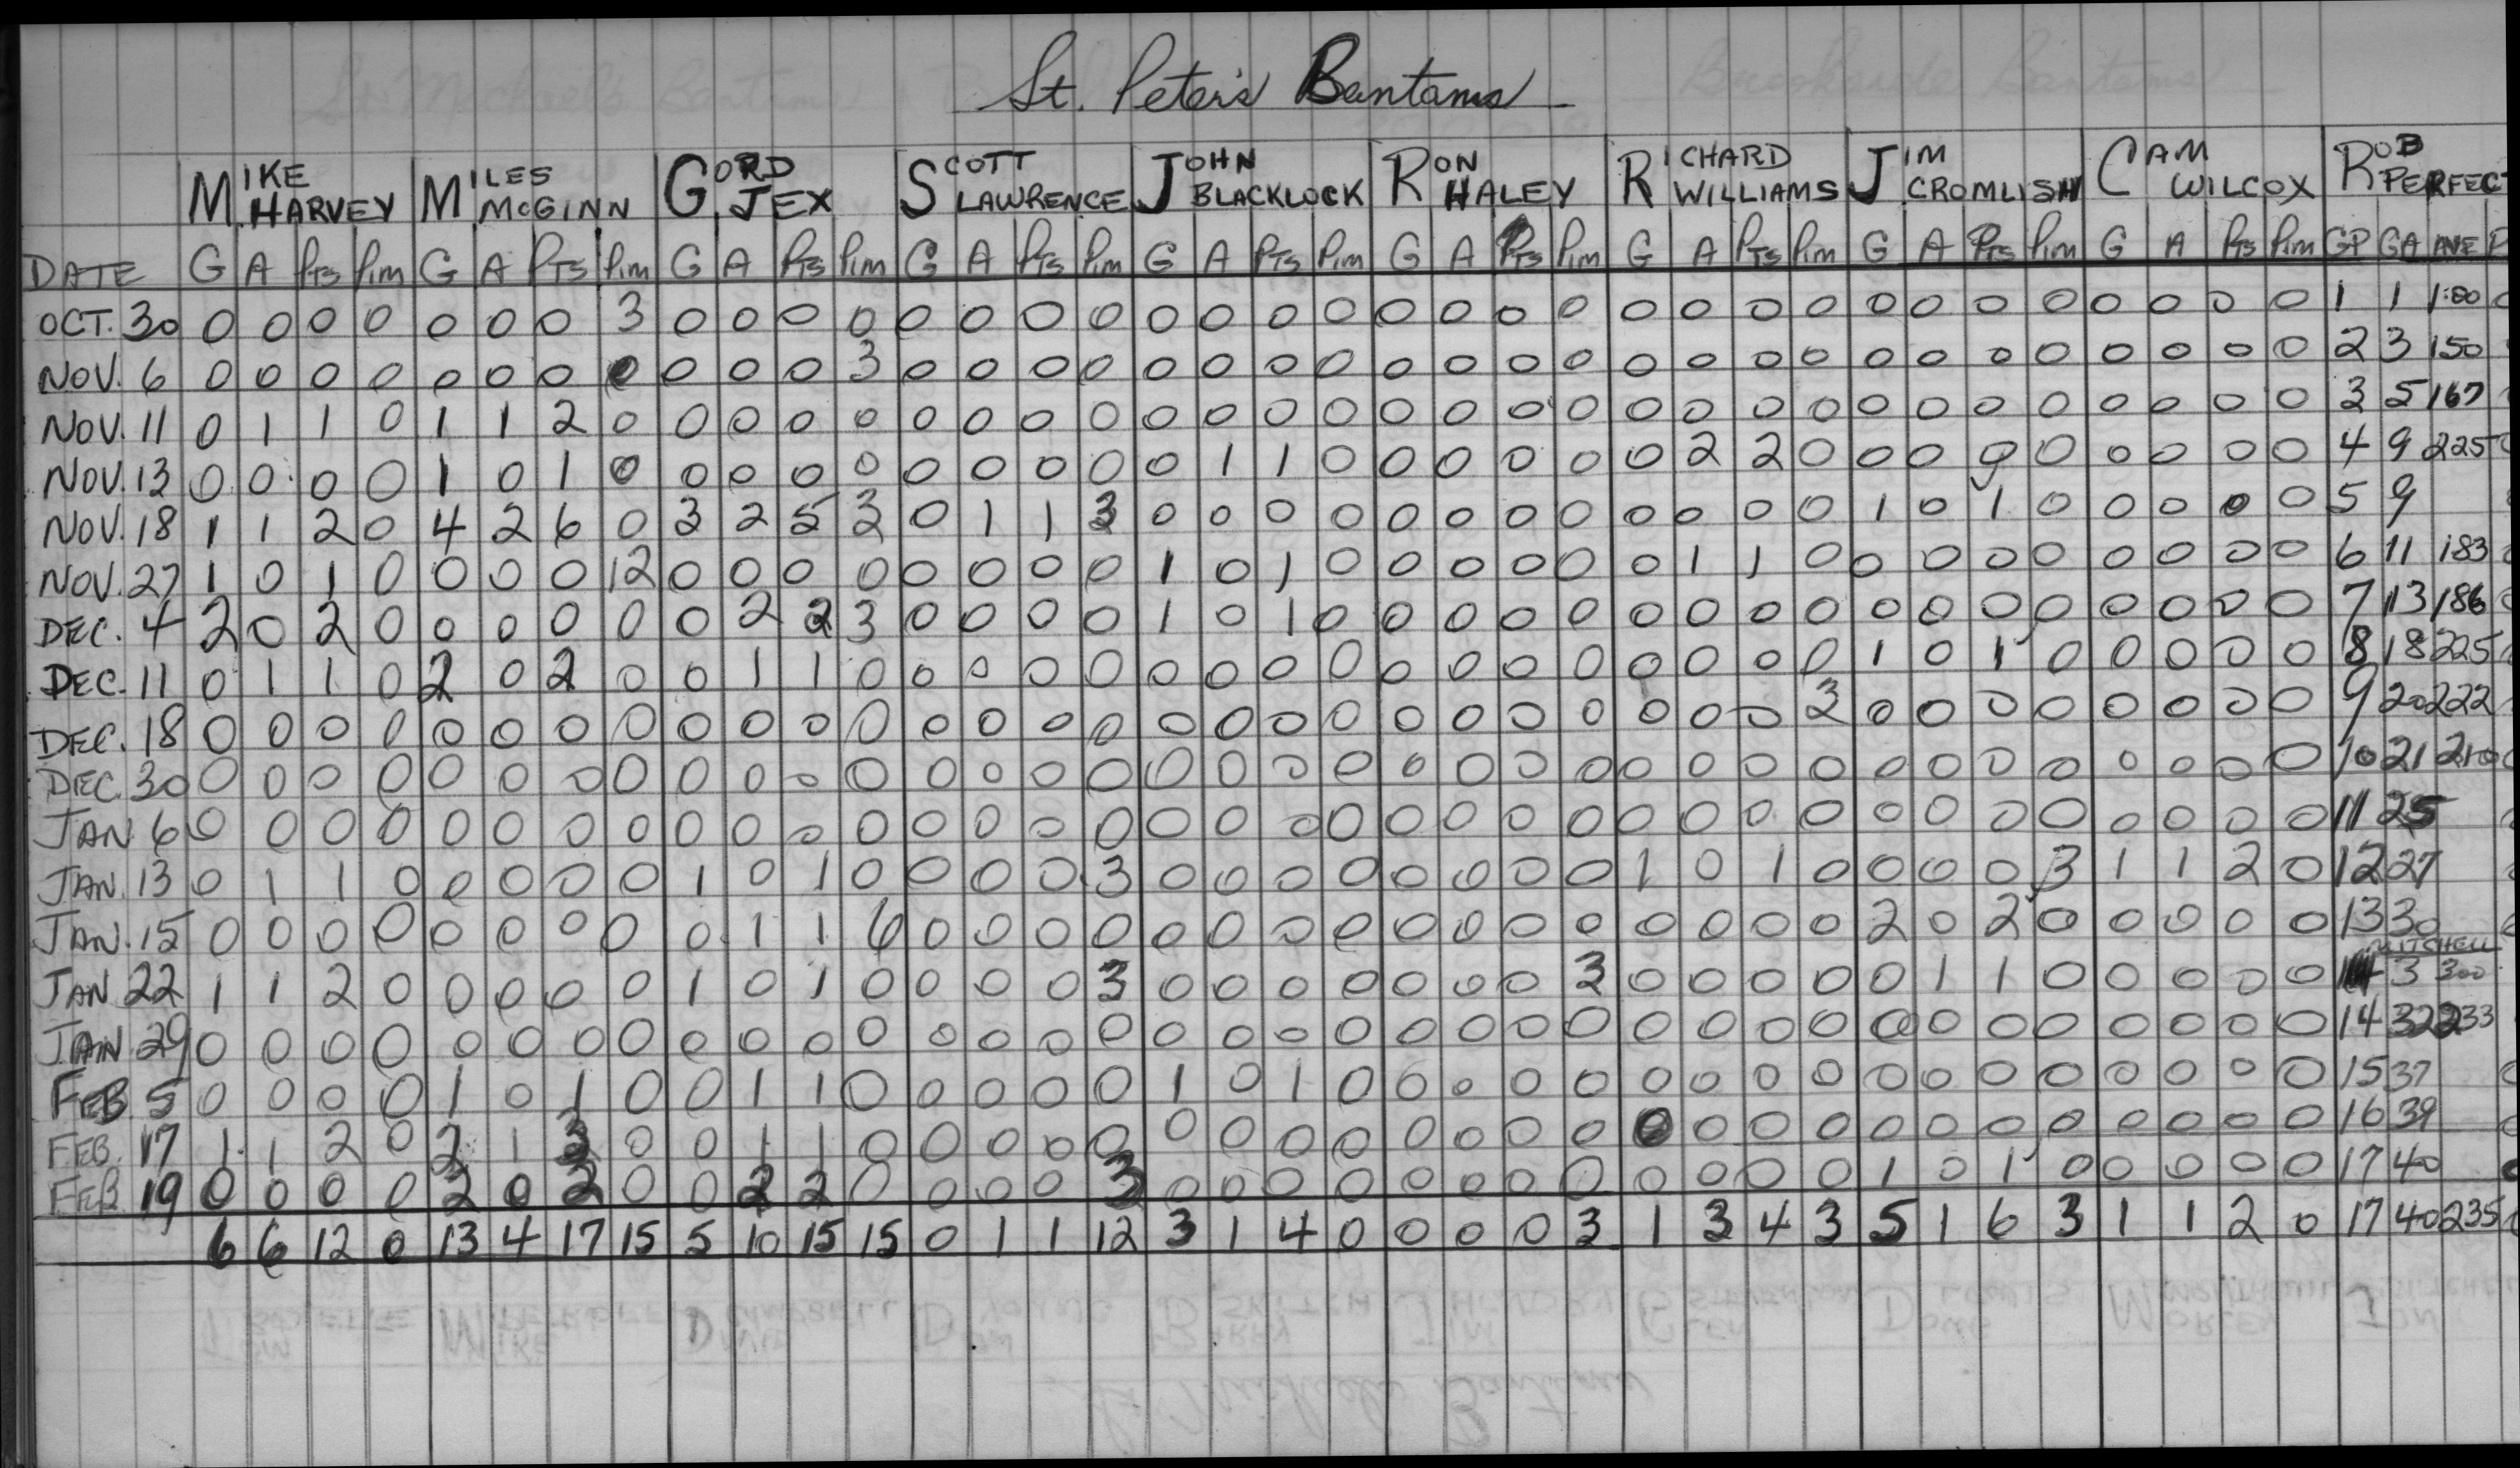 St. Peter's Bantams
MIKE HARVEY MILES McGINN GORD JEX SCOTT LAWRENCE JOHN BLACKLOCK RON HALEY RICHARD WILLIAMS JIM CROMLISH CAM WILCOX ROB PERFECT
DATE G A Pts Pim G A Pts Pim G A Pts Pim G A Pts Pim G A Pts Pim G A Pts Pim G A Pts Pim G A Pts Pim G A Pts Pim GP GA AVE P
OCT. 30 0 0 0 0 0 0 0 3 0 0 0 0 0 0 0 0 0 0 0 0 0 0 0 0 0 0 0 0 0 0 0 0 0 0 0 0 1 1 1:00
NOV. 6 0 0 0 0 0 0 0 0 0 0 0 3 0 0 0 0 0 0 0 0 0 0 0 0 0 0 0 0 0 0 0 0 0 0 0 0 2 3 150
NOV. 11 0 1 1 0 1 1 2 0 0 0 0 0 0 0 0 0 0 0 0 0 0 0 0 0 0 0 0 0 0 0 0 0 0 0 0 0 3 5 167
NOV. 13 0 0 0 0 1 0 1 0 0 0 0 0 0 0 0 0 0 1 1 0 0 0 0 0 0 2 2 0 0 0 0 0 0 0 0 0 4 9 225
NOV. 18 1 1 2 0 4 2 6 0 3 2 5 3 0 1 1 3 0 0 0 0 0 0 0 0 0 0 0 0 1 0 1 0 0 0 0 0 5 9
NOV. 27 1 0 1 0 0 0 0 12 0 0 0 0 0 0 0 0 1 0 1 0 0 0 0 0 0 1 1 0 0 0 0 0 0 0 0 0 6 11 183
DEC. 4 2 0 2 0 0 0 0 0 0 2 2 3 0 0 0 0 1 0 1 0 0 0 0 0 0 0 0 0 0 0 0 0 0 0 0 0 7 13 186
DEC. 11 0 1 1 0 2 0 2 0 0 1 1 0 0 0 0 0 0 0 0 0 0 0 0 0 0 0 0 0 1 0 1 0 0 0 0 0 8 18 225
DEC. 18 0 0 0 0 0 0 0 0 0 0 0 0 0 0 0 0 0 0 0 0 0 0 0 0 0 0 0 3 0 0 0 0 0 0 0 0 9 20 222
DEC. 30 0 0 0 0 0 0 0 0 0 0 0 0 0 0 0 0 0 0 0 0 0 0 0 0 0 0 0 0 0 0 0 0 0 0 0 0 10 21 210
JAN 6 0 0 0 0 0 0 0 0 0 0 0 0 0 0 0 0 0 0 0 0 0 0 0 0 0 0 0 0 0 0 0 0 0 0 0 0 11 25
JAN. 13 0 1 1 0 0 0 0 0 1 0 1 0 0 0 0 3 0 0 0 0 0 0 0 0 1 0 1 0 0 0 0 3 1 1 2 0 12 27
JAN. 15 0 0 0 0 0 0 0 0 0 1 1 6 0 0 0 0 0 0 0 0 0 0 0 0 0 0 0 0 2 0 2 0 0 0 0 0 13 30
MITCHELL
JAN 22 1 1 2 0 0 0 0 0 1 0 1 0 0 0 0 3 0 0 0 0 0 0 0 3 0 0 0 0 0 1 1 0 0 0 0 0 3 300
JAN 29 0 0 0 0 0 0 0 0 0 0 0 0 0 0 0 0 0 0 0 0 0 0 0 0 0 0 0 0 0 0 0 0 0 0 0 0 14 32 233
FEB 5 0 0 0 0 1 0 1 0 0 1 1 0 0 0 0 0 1 0 1 0 0 0 0 0 0 0 0 0 0 0 0 0 0 0 0 0 15 37
FEB. 17 1 1 2 0 2 1 3 0 0 1 1 0 0 0 0 0 0 0 0 0 0 0 0 0 0 0 0 0 0 0 0 0 0 0 0 0 16 39
FEB. 19 0 0 0 0 2 0 2 0 0 2 2 0 0 0 0 3 0 0 0 0 0 0 0 0 0 0 0 0 1 0 1 0 0 0 0 0 17 40
6 6 12 0 13 4 17 15 5 10 15 15 0 1 1 12 3 1 4 0 0 0 0 3 1 3 4 3 5 1 6 3 1 1 2 0 17 40 235